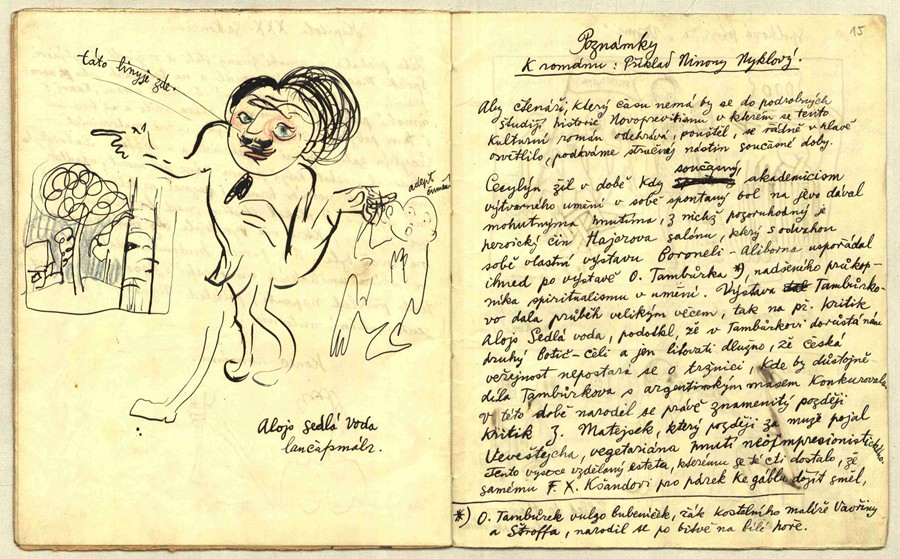 táto linyje zde.
adept
Alojs Sedlá Voda
lančápmálr.
15
Poznámky
K románu: Příklad Ninony Nyklový.
Aby čtenáři, který času nemá by se do podrobných
studijí historie Novoprevitismu v kterém se tento
kulturní román odehrává, pouštěl, se řádně v hlavě
osvětlilo, podáváme stručnej nástin současné doby.
Cesylyn žil v době kdy současný akademicism
výtvarného umění v sobě spontaný bol na jevo dával
mohutnýma hnutíma, z nichž pozoruhodný je
heroický čin Hajerova salónu, kerý s odvahou
sobě vlastní výstavu Boroneli-Aliborna uspořádal
ihned po výstavě O. Tambůrka *), nadšeního průkop-
níka spiritualismu v umění. Výstava Tambůrko-
vo dala průběh velikým věcem, tak na př. kritik
Alojs Sedlá voda, podotkl, že v Tambůrkovi dorůstá nám
druhý Botič-celi a jen litovati dlužno, že česká
veřejnost nepostará se o tržnici, kde by důstojně
díla Tambůrkova s argentinskym masem konkurovala.
v této době narodil se právě znamenitý později
kritik J. Matejsek, který později za muže pojal
Uevešťejcha, vegetariána hnutí neoimpresionistického.
Tento vysoce vzdělaný esteta, kterému se té cti dostalo, že
samému F. X. Kšandovi pro párek ke gáblu dojít směl,
*) O. Tambůrek vulgo bubeníček, žák kostelního malíře Vavřiny
a Štroffa, narodil se po bitvě na bílé hoře.